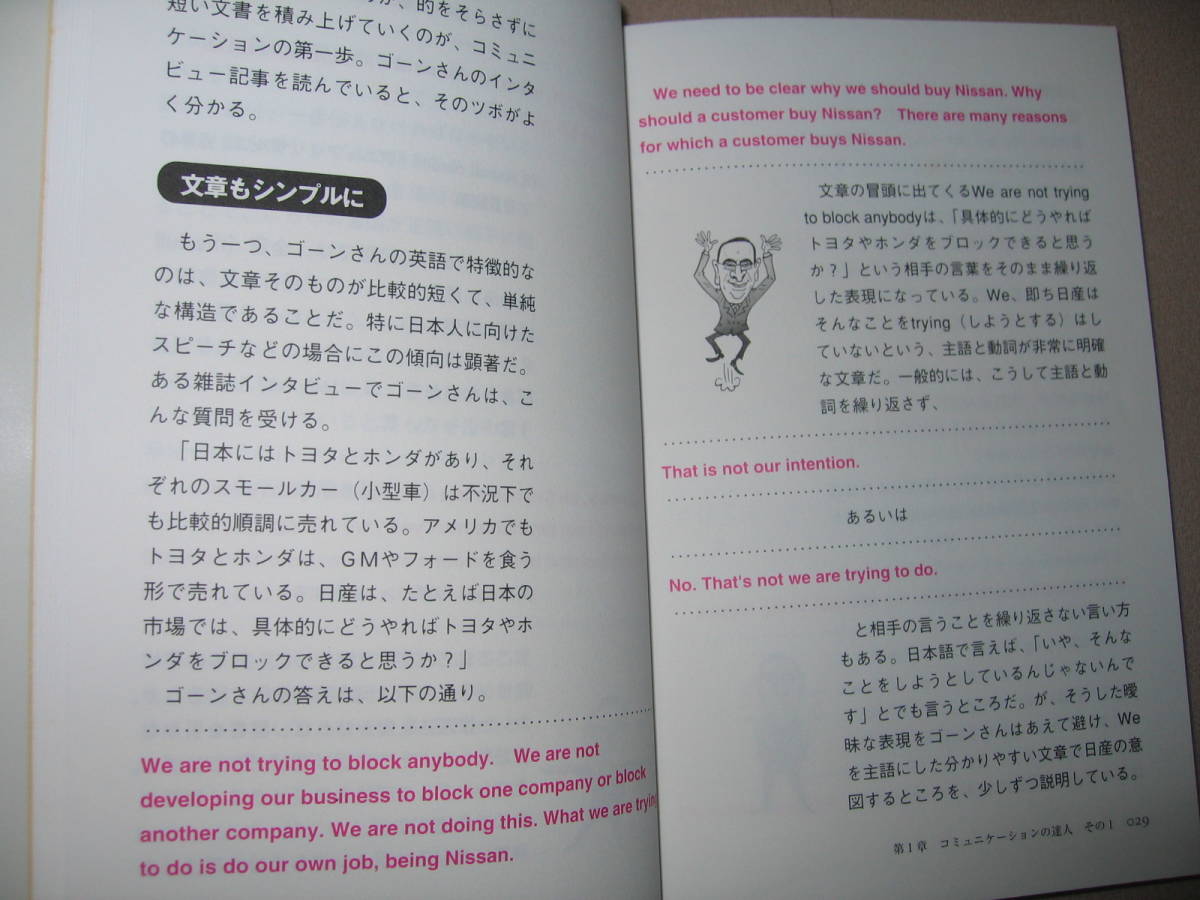 、的をそらさずに
短い文書を積み上げていくのが、コミュニ
ケーションの第一歩。ゴーンさんのインタ
ビュー記事を読んでいると、そのツボがよ
く分かる。
文章もシンプルに
もう一つ、ゴーンさんの英語で特徴的な
のは、文章そのものが比較的短くて、単純
な構造であることだ。特に日本人に向けた
スピーチなどの場合にこの傾向は顕著だ。
ある雑誌インタビューでゴーンさんは、こ
んな質問を受ける。
「日本にはトヨタとホンダがあり、それ
ぞれのスモールカー（小型車）は不況下で
も比較的順調に売れている。アメリカでも
トヨタとホンダは、GMやフォードを食う
形で売れている。日産は、たとえば日本の
市場では、具体的にどうやればトヨタやホ
ンダをブロックできると思うか？」
ゴーンさんの答えは、以下の通り。
We are not trying to block anybody. We are not
developing our business to block one company or block
another company. We are not doing this. What we are trying
to do is do our own job, being Nissan.
We need to be clear why we should buy Nissan. Why
should a customer buy Nissan? There are many reasons
for which a customer buys Nissan.
文章の冒頭に出てくるWe are not trying
to block anybodyは、「具体的にどうやれば
トヨタやホンダをブロックできると思う
か？」という相手の言葉をそのまま繰り返
した表現になっている。We、即ち日産は
そんなことをtrying（しようとする）はし
ていないという、主語と動詞が非常に明確
な文章だ。一般的には、こうして主語と動
詞を繰り返さず、
That is not our intention.
あるいは
No. That's not we are trying to do.
と相手の言うことを繰り返さない言い方
もある。日本語で言えば、「いや、そんな
ことをしようとしているんじゃないんで
す」とでも言うところだ。が、そうした曖
昧な表現をゴーンさんはあえて避け、We
を主語にした分かりやすい文章で日産の意
図するところを、少しずつ説明している。
第1章 コミュニケーションの達人 その1 029